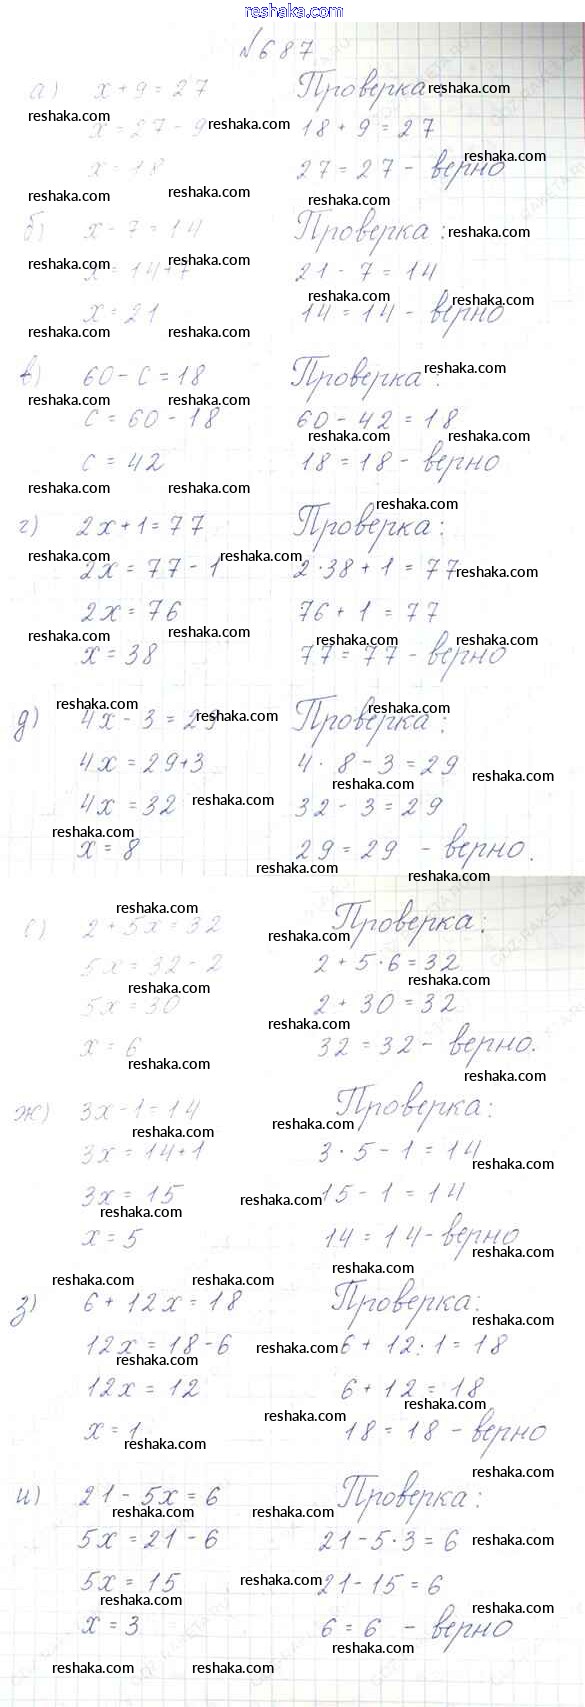 reshaka.com
№687
а) x + 9 = 27 Проверка:
x = 27 - 9 18 + 9 = 27
x = 18 27 = 27 - верно
б) x - 7 = 14 Проверка:
x = 14 + 7 21 - 7 = 14
x = 21 14 = 14 - верно
в) 60 - c = 18 Проверка:
c = 60 - 18 60 - 42 = 18
c = 42 18 = 18 - верно
г) 2x + 1 = 77 Проверка:
2x = 77 - 1 2 · 38 + 1 = 77
2x = 76 76 + 1 = 77
x = 38 77 = 77 - верно
д) 4x - 3 = 29 Проверка:
4x = 29 + 3 4 · 8 - 3 = 29
4x = 32 32 - 3 = 29
x = 8 29 = 29 - верно.
е) 2 + 5x = 32 Проверка:
5x = 32 - 2 2 + 5 · 6 = 32
5x = 30 2 + 30 = 32
x = 6 32 = 32 - верно.
ж) 3x - 1 = 14 Проверка:
3x = 14 + 1 3 · 5 - 1 = 14
3x = 15 15 - 1 = 14
x = 5 14 = 14 - верно
з) 6 + 12x = 18 Проверка:
12x = 18 - 6 6 + 12 · 1 = 18
12x = 12 6 + 12 = 18
x = 1 18 = 18 - верно
и) 21 - 5x = 6 Проверка:
5x = 21 - 6 21 - 5 · 3 = 6
5x = 15 21 - 15 = 6
x = 3 6 = 6 - верно